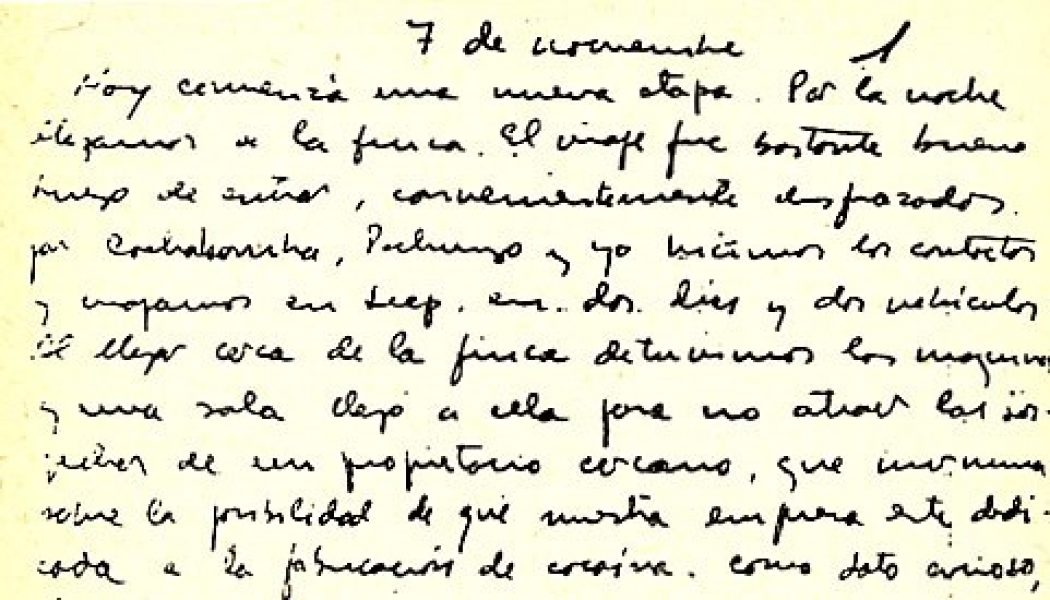 7 de noviembre 1
Hoy comienza una nueva etapa. Por la noche
llegamos a la finca. El viaje fue bastante bueno
luego de entrar, convenientemente disfrazados
por Cochabamba, Pachungo y yo hicimos los contactos
y viajamos en Jeep, en dos días y dos vehículos
Al llegar cerca de la finca detuvimos las máquinas
y una sola llegó a ella para no atraer las sos-
pechas de un propietario cercano, que murmura
sobre la posibilidad de que nuestra empresa esté dedi-
cada a la fabricación de cocaína. Como dato curioso,